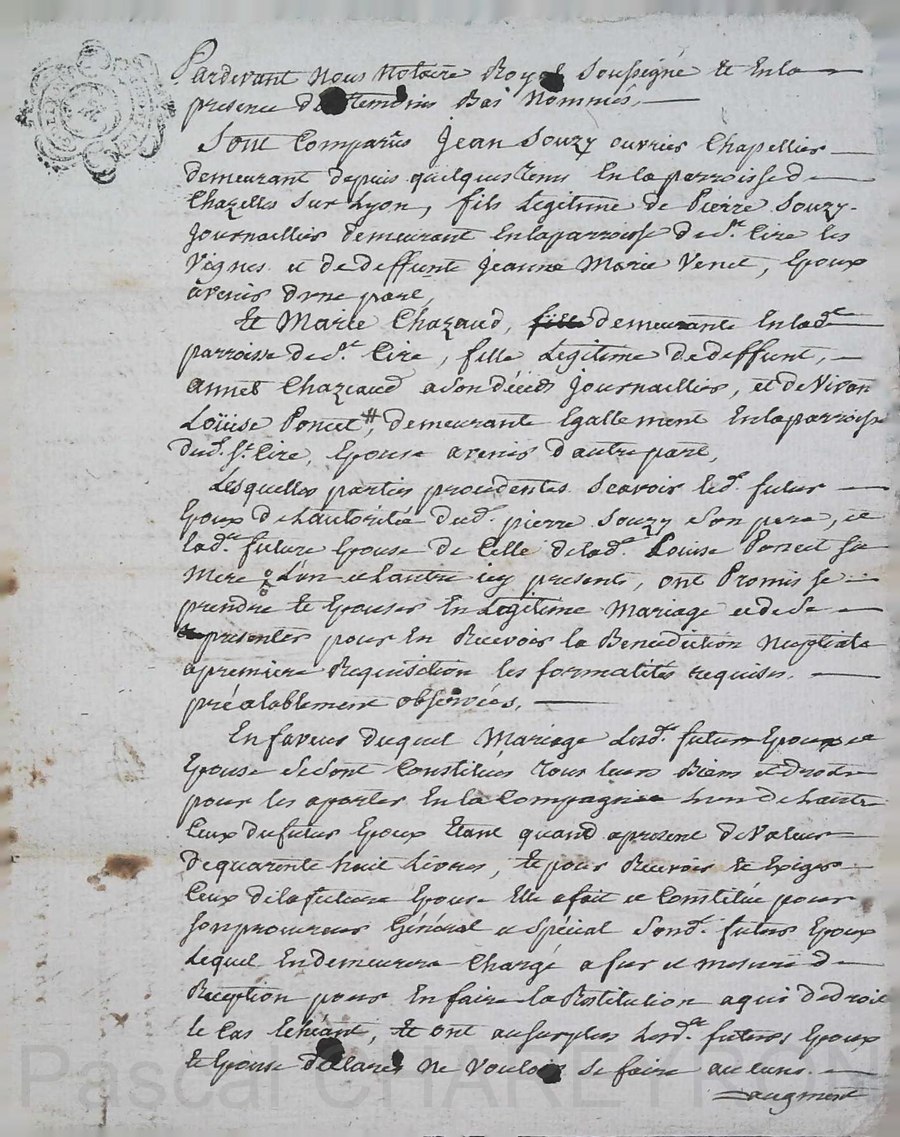 Pardevant Nous Notaire Royal Soussigné et En la
presence des temoins Bas Nommés.
Sont Comparus Jean Souzy ouvrier Chapellier
demeurant depuis quelques tems En la parroisse de
Chazelles sur Lyon, fils Legitime de Pierre Souzy
Journaillier demeurant En la parroisse de St. Cire les
Vignes et de deffunte Jeanne Marie Venet, Epoux
avenir d'une part,
Et Marie Chazaud, demeurante En lade.
parroisse de St. Cire, fille Legitime de deffunt,
annet Chazaud a son décéds Journaillier, et de Vivante
Loüise Poncet #, demeurante Egallement En la parroisse
dud. St. Cire, Epouse avenir d'autre part,
Lesquelles parties procedentes Scavoir led. futur
Epoux de L'autorité dud. pierre Souzy son pere, et
lade. future Epouse de Celle de lade. Louise Poncet sa
mere L'un et L'autre icy presents, ont Promis se
prendre et Epouser En Legitime Mariage et de se
presenter pour En Recevoir la Benediction Nuptiale
a premiere Requisition les formalités requises
préalablement observées,
En faveur duquel Mariage Lesds. futurs Epoux et
Epouse se sont Constitués tous leurs Biens et droits
pour les aporter En la Compagnie L'un de L'autre
Ceux du futur Epoux Etant quand a present de Valeur
de quarente huit Livres, et pour Recevoir et Exiger
Ceux de la future Epouse Elle a fait et Constitué pour
son procureur Général et Spécial Sond. futur Epoux
Lequel En demeurera Chargé a fur et mesure de
Reception pour En faire la Restitution a qui de droit
le Cas Echéant, Et ont au surplus Lesds. futurs Epoux
et Epouse declarés ne Vouloir se faire aucuns
augment
Pascal CHAREYRON